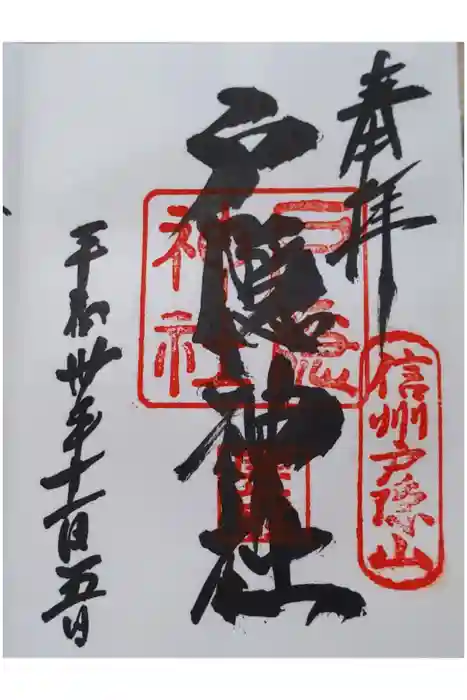 奉拝
信州戸隠山
戸隠神社
戸隠
神社
平成卅年十一月五日